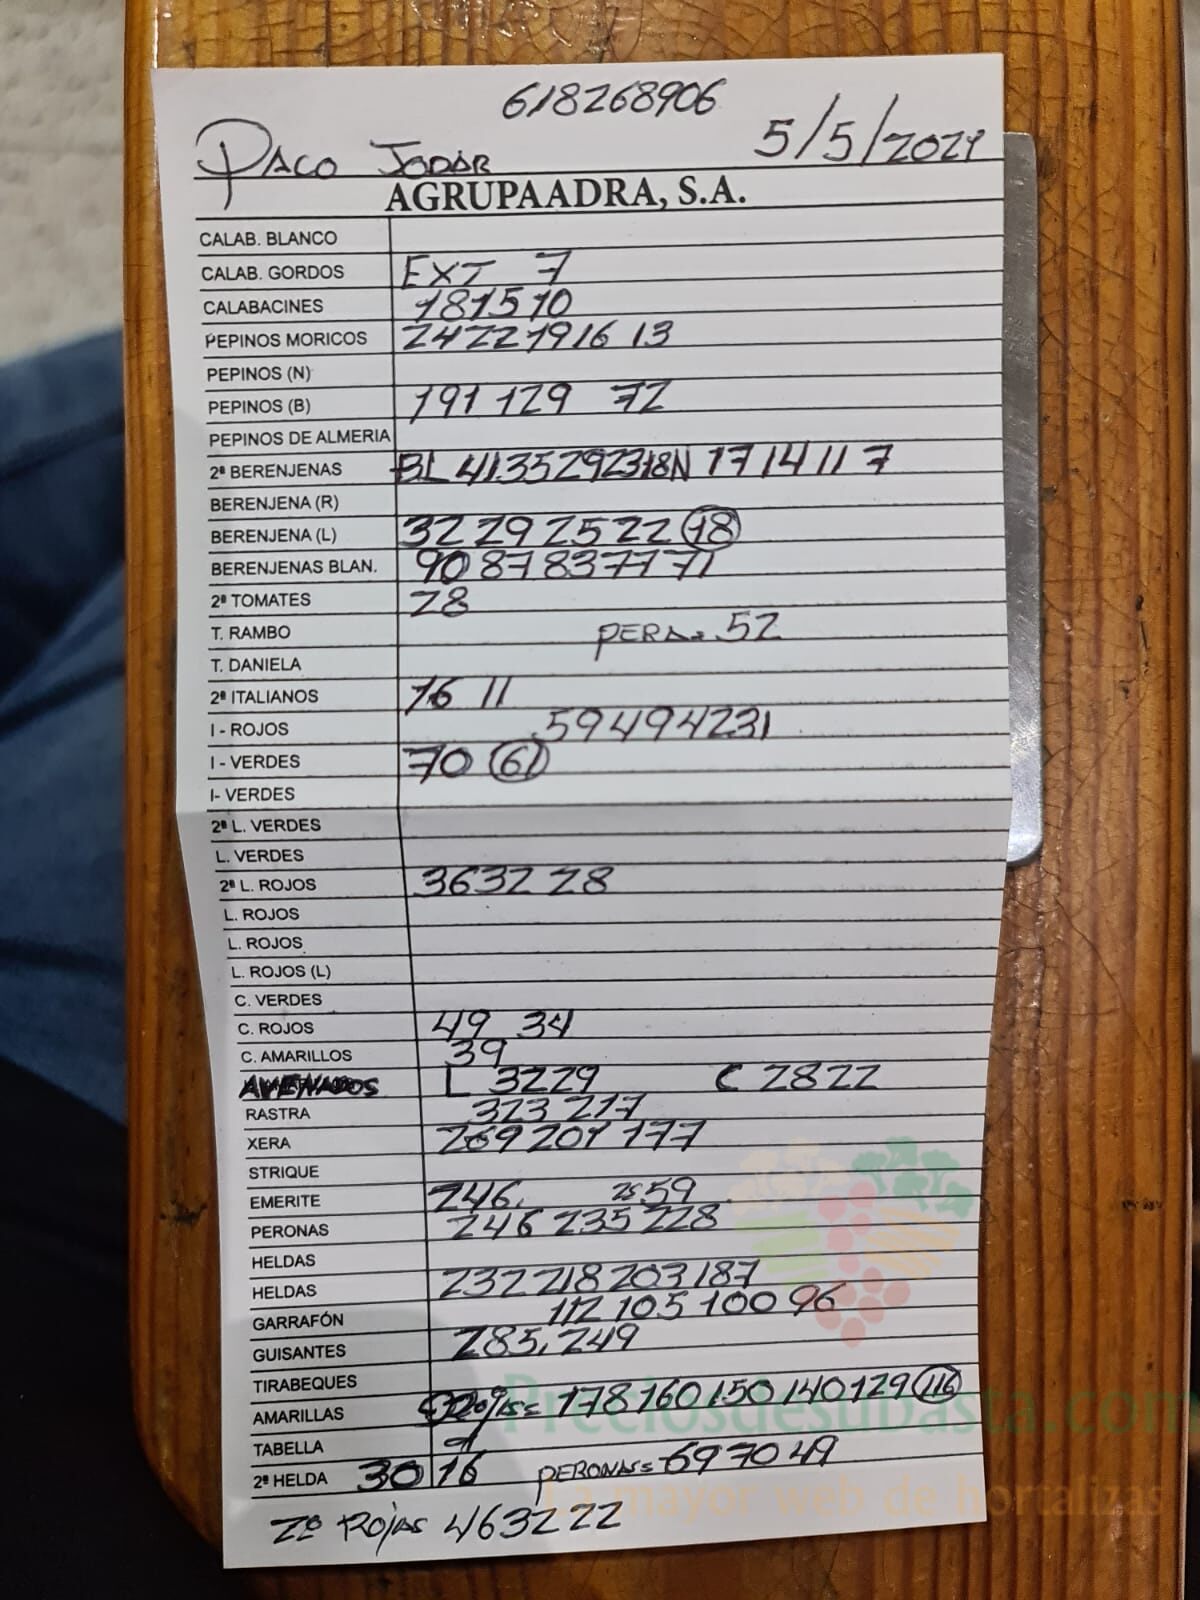 618268906
PACO JODAR 5/5/2021
AGRUPAADRA, S.A.
CALAB. BLANCO
CALAB. GORDOS EXT 7
CALABACINES 18 15 10
PEPINOS MORICOS 24 22 19 16 13
PEPINOS (N)
PEPINOS (B) 191 129 72
PEPINOS DE ALMERIA
2ª BERENJENAS BL 41 35 29 23 18 N 17 14 11 7
BERENJENA (R)
BERENJENA (L) 32 29 25 22 18
BERENJENAS BLAN. 90 87 83 77 71
2ª TOMATES 28
T. RAMBO PERA= 52
T. DANIELA
2ª ITALIANOS 16 11
I - ROJOS 59 49 42 31
I - VERDES 70 61
I- VERDES
2ª L. VERDES
L. VERDES
2ª L. ROJOS 36 32 28
L. ROJOS
L. ROJOS
L. ROJOS (L)
C. VERDES
C. ROJOS 49 34
C. AMARILLOS 39
AVENADOS L 32 29 C 28 22
RASTRA 323 217
XERA 269 201 177
STRIQUE
EMERITE 246. 2ª 59
PERONAS 246 235 228
HELDAS
HELDAS 232 218 203 187
GARRAFÓN 112 105 100 96
GUISANTES 285, 249
TIRABEQUES
AMARILLAS 178 160 150 140 129 116
TABELLA
2ª HELDA 30 16 PERONAS= 69 70 49
2ª ROJAS 46 32 22
Preciosdesubasta.com
La mayor web de hortalizas